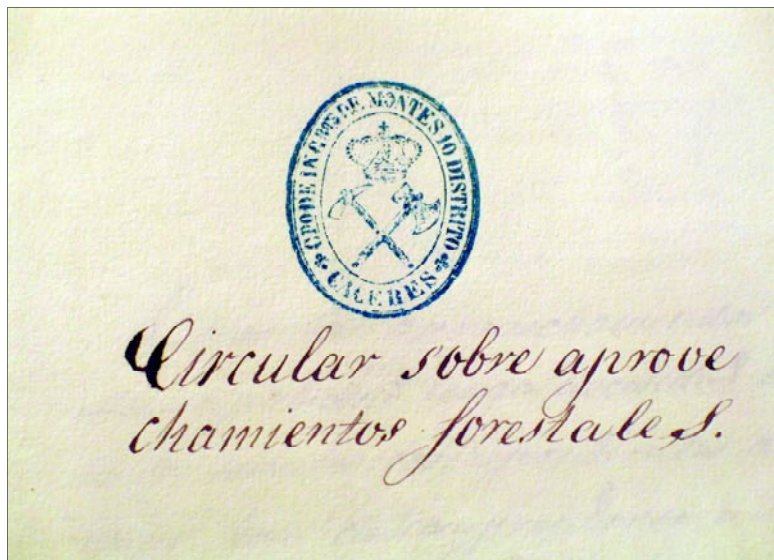 CPO DE INGROS DE MONTES 10 DISTRITO
CACERES
Circular sobre aprove
chamientos forestales.